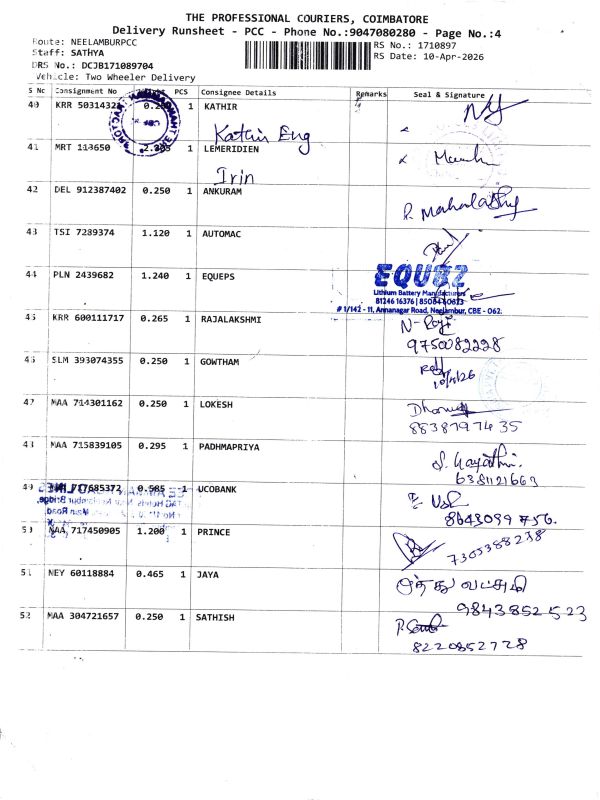 THE PROFESSIONAL COURIERS, COIMBATORE
Delivery Runsheet - PCC - Phone No.:9047080280 - Page No.:4
Route: NEELAMBURPCC
RS No.: 1710897
Staff: SATHYA
RS Date: 10-Apr-2026
DRS No.: DCJB171089704
Vehicle: Two Wheeler Delivery
S No Consignment No PCS Consignee Details Remarks Seal & Signature
40 KRR 50314328 1 KATHIR
Kathir Eng
41 MRT 113650 1 LEMERIDIEN
Irin
42 DEL 912387402 0.250 1 ANKURAM
P. Mahalakshmy
43 TSI 7289374 1.120 1 AUTOMAC
44 PLN 2439682 1.240 1 EQUEPS
EQUBZ
Lithium Battery Manufacturers
81246 16376 | 85084 40823
# 1/142 - 11, Annanagar Road, Neelambur, CBE - 062.
45 KRR 600111717 0.265 1 RAJALAKSHMI
N-Raji
9750082228
46 SLM 393074355 0.250 1 GOWTHAM
10/4/26
47 MAA 714301162 0.250 1 LOKESH
8838797435
48 MAA 715839105 0.295 1 PADHMAPRIYA
S. Gayathri.
6381121663
49 MAA 717685372 0.585 1 UCOBANK
8643099756.
50 MAA 717450905 1.200 1 PRINCE
7305388238
51 NEY 60118884 0.465 1 JAYA
முத்து லட்சுமி
9843852523
52 MAA 304721657 0.250 1 SATHISH
8220852728